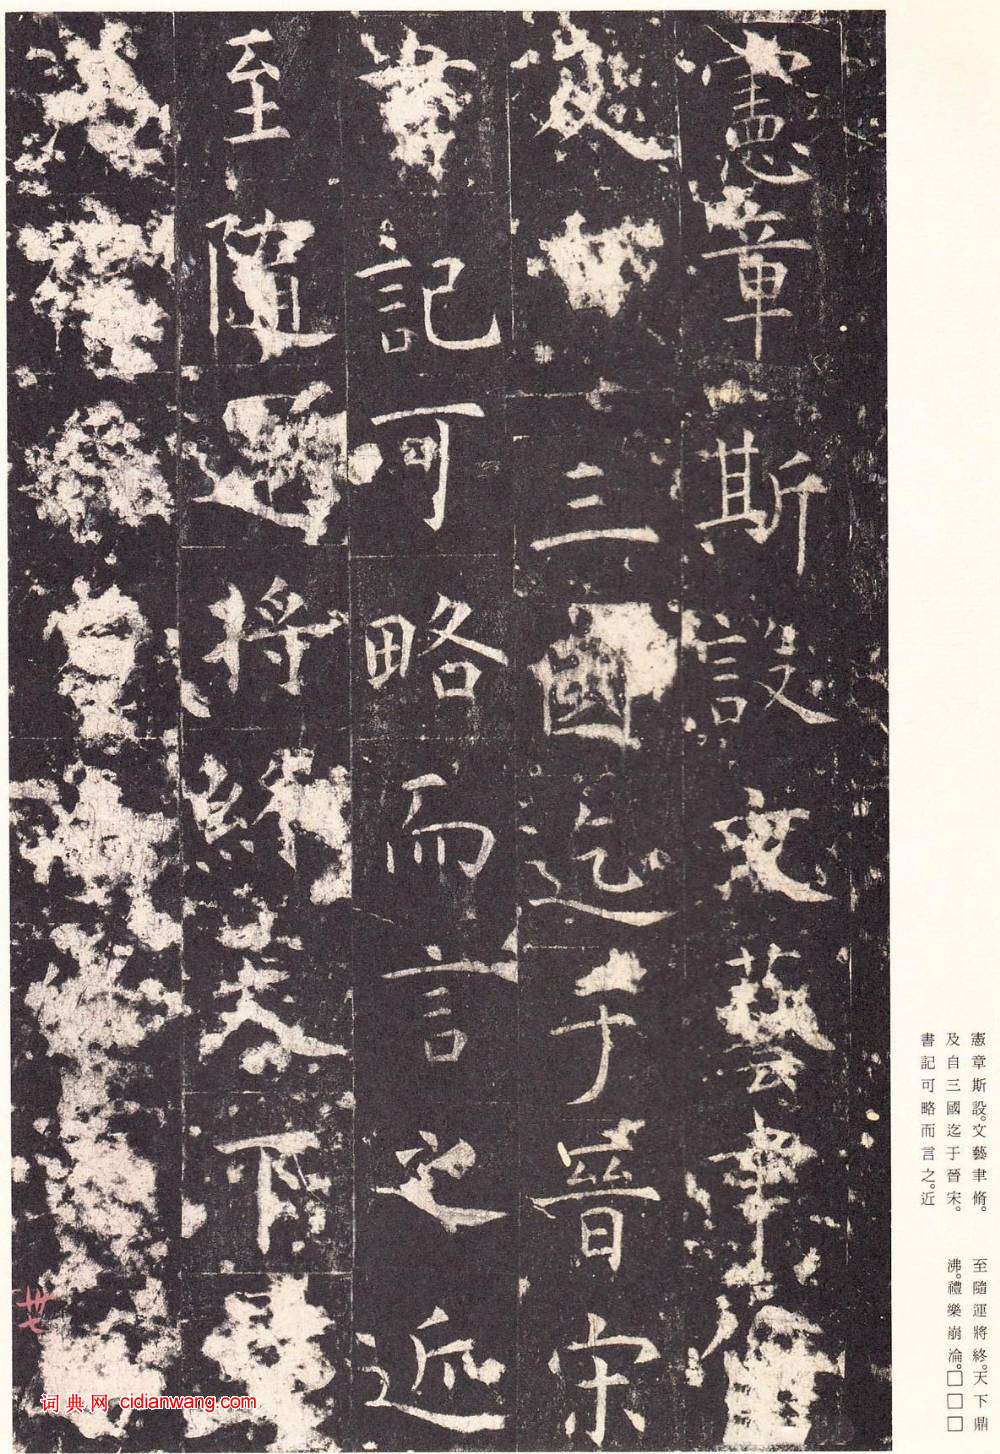 憲章斯設。文藝聿脩。
及自三國迄于晉宋。
書記可略而言之。近
至隨運將終。天下鼎
沸。禮樂崩淪。□□□
憲章斯設文藝聿脩
及自三國迄于晉宋
書記可略而言之近
至隨運將終天下
卅七
词典网 cidianwang.com